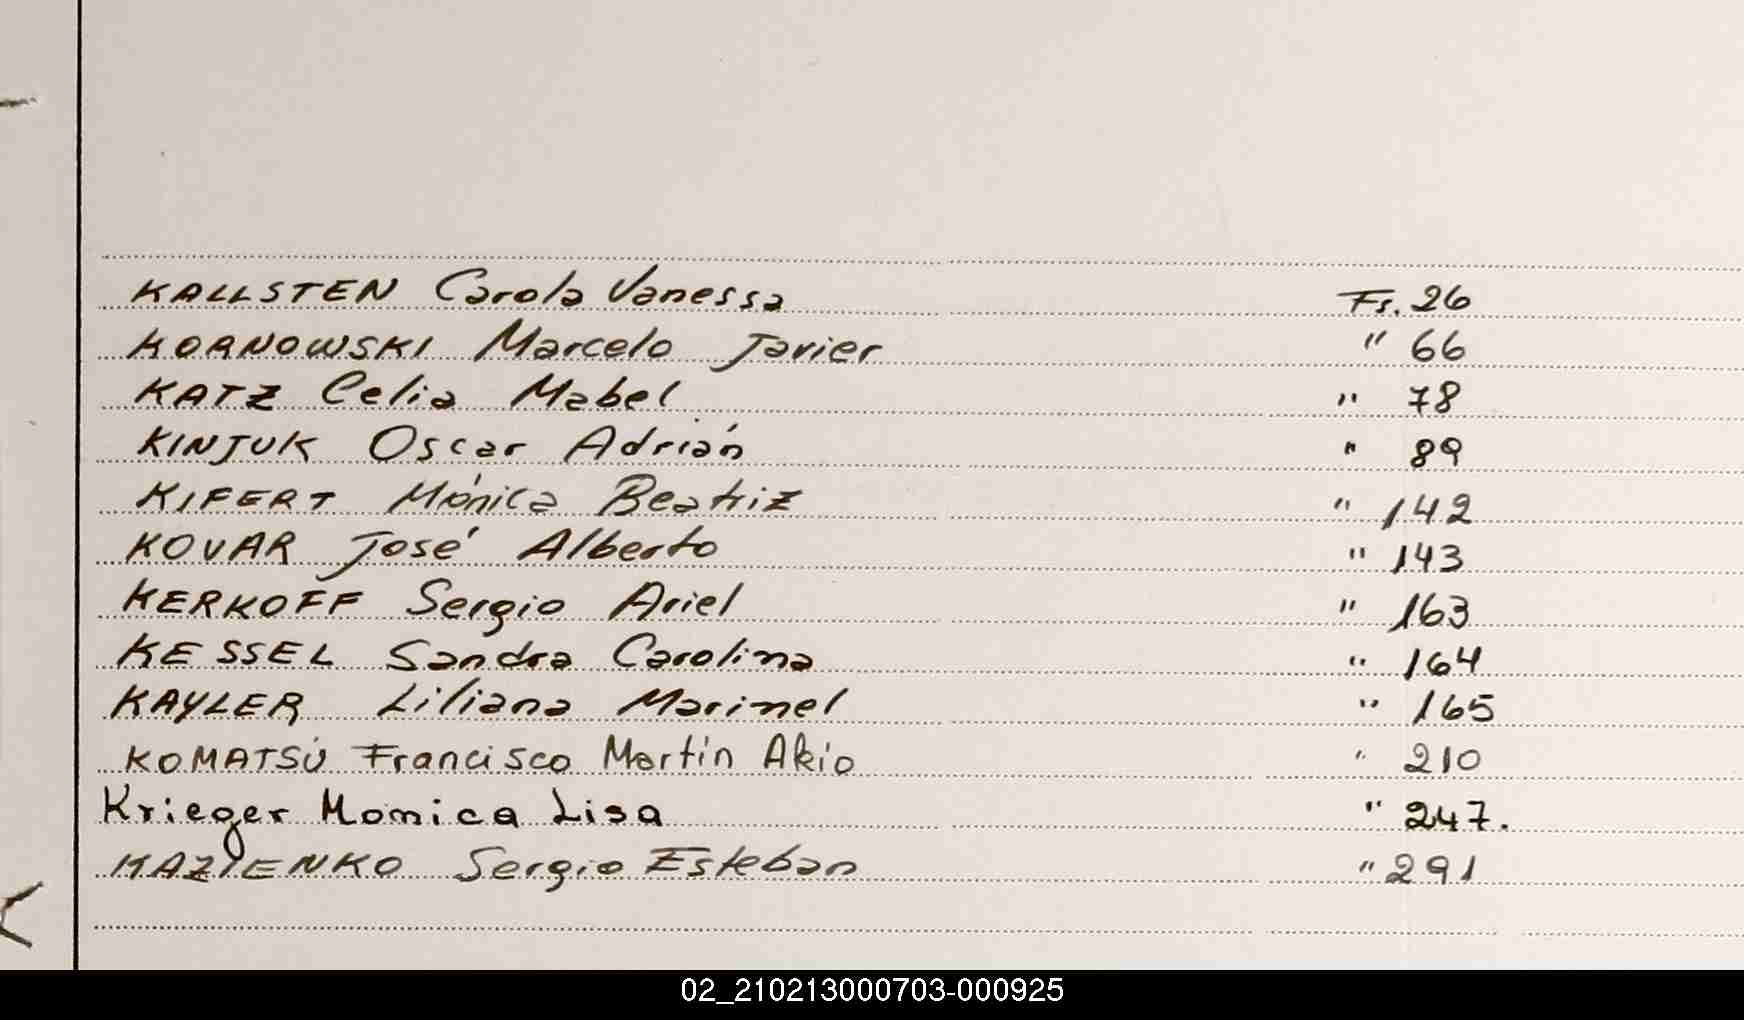 KALLSTEN Carola Vanessa Fs. 26
KORNOWSKI Marcelo Javier " 66
KATZ Celia Mabel " 78
KINJUK Oscar Adrián " 89
KIFERT Mónica Beatriz " 142
KOVAR José Alberto " 143
KERKOFF Sergio Ariel " 163
KESSEL Sandra Carolina " 164
KAYLER Liliana Marinel " 165
KOMATSÚ Francisco Martín Akio " 210
Krieger Monica Lisa " 247.
KAZIENKO Sergio Esteban " 291
02_210213000703-000925